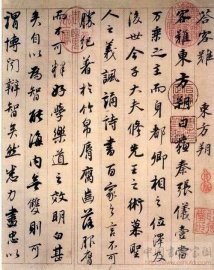 答客難
東方朔
客難東方朔曰蘇秦張儀壹當
萬乘之主而身都卿相之位澤及
後世今子大夫修先王之術慕聖
人之義諷誦詩書百家之言不可
勝紀著於竹帛脣腐齒落服膺
而不可釋好學樂道之效明白甚
矣自以為智能海內無雙則可
謂博聞辯智矣然悉力盡忠以